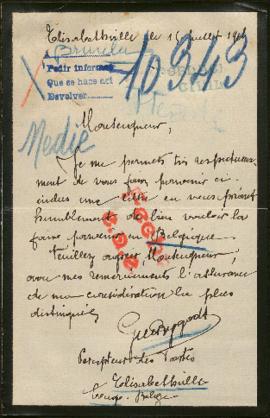 Elisabethville le 15 juillet 191
Bruxelles
Pedir informes
Que se hace act
Devolver
10343
Medic
Monseigneur,
Je me permets très respectueuse-
ment de vous faire parvenir ci
incluse une lettre en vous priant
humblement de bien vouloir la
faire parvenir en Belgique
Veuillez agréer, Monseigneur,
avec mes remerciements l'assurance
de ma considération la plus
distinguée,
Percepteur des Postes
Elisabethville
Congo-Belge